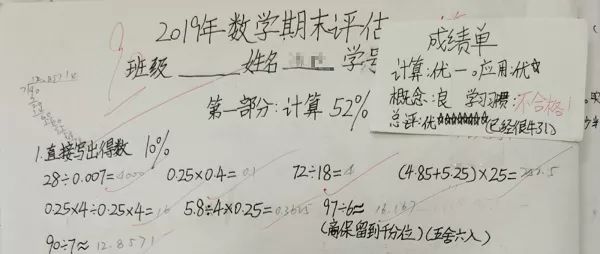 2019年数学期末评估
班级 姓名 学号
成绩单
计算:优一。应用:优☆
概念:良 学习习惯:不合格!
总评:优☆☆☆☆☆☆☆(已经很牛了!)
第一部分:计算 52%
1.直接写出得数 10%
28÷0.007=4000 0.25×0.4=0.1 72÷18=4 (4.85+5.25)×25=252.5
0.25×4÷0.25×4=16 5.8÷4×0.25=0.3625 97÷6≈16.167
(商保留到千分位)(五舍六入)
90÷7≈12.8571